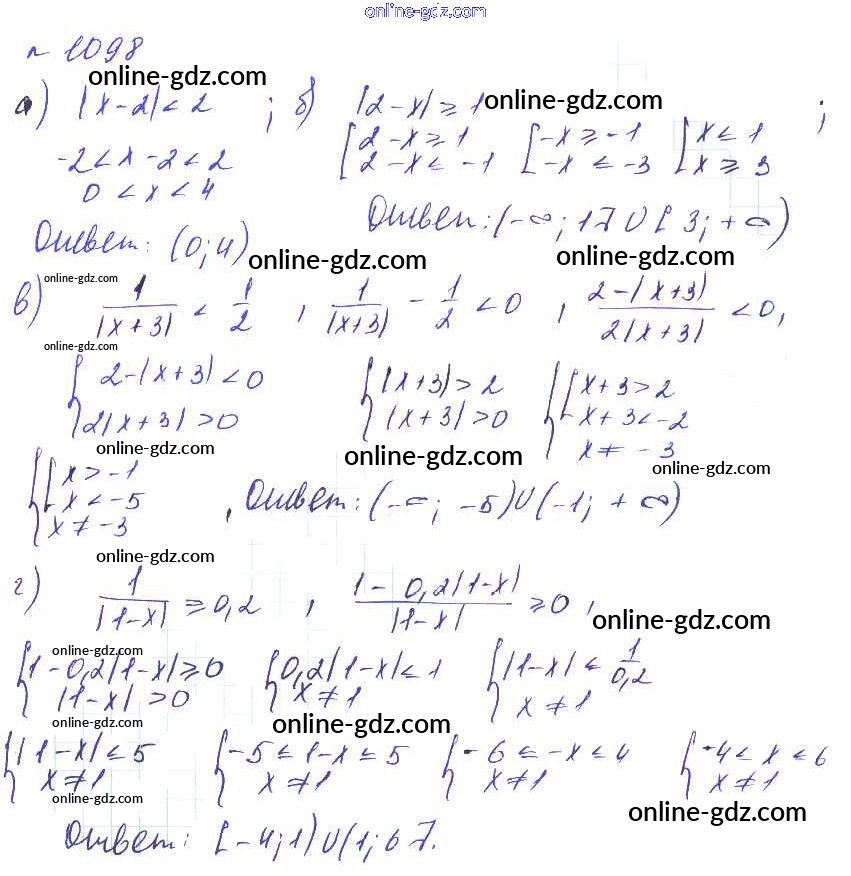 online-gdz.com
№ 1098
online-gdz.com
а) |x-2| < 2 ; б) |2-x| ≥ 1 online-gdz.com ;
-2 < x-2 < 2 [2-x ≥ 1 [-x ≥ -1 [x ≤ 1
0 < x < 4 [2-x ≤ -1 [-x ≤ -3 [x ≥ 3
Ответ: (0; 4) Ответ: (-∞; 1] ∪ [3; +∞)
online-gdz.com online-gdz.com
online-gdz.com
в) 1/|x+3| < 1/2 , 1/|x+3| - 1/2 < 0 , 2-|x+3| / 2|x+3| < 0,
online-gdz.com
{2-|x+3| < 0 {|x+3| > 2 {[x+3 > 2
{2|x+3| > 0 {|x+3| > 0 {[x+3 < -2
{x ≠ -3
online-gdz.com online-gdz.com online-gdz.com
{[x > -1
{[x < -5 , Ответ: (-∞; -5) ∪ (-1; +∞)
{x ≠ -3
online-gdz.com online-gdz.com
г) 1/|1-x| ≥ 0,2 , 1-0,2|1-x| / |1-x| ≥ 0,
online-gdz.com online-gdz.com
online-gdz.com
{1-0,2|1-x| ≥ 0 {0,2|1-x| ≤ 1 {|1-x| ≤ 1/0,2
{|1-x| > 0 {x ≠ 1 {x ≠ 1
online-gdz.com online-gdz.com
{|1-x| ≤ 5 {-5 ≤ 1-x ≤ 5 {-6 ≤ -x ≤ 4 {-4 ≤ x ≤ 6
{x ≠ 1 {x ≠ 1 {x ≠ 1 {x ≠ 1
online-gdz.com online-gdz.com
Ответ: [-4; 1) ∪ (1; 6].